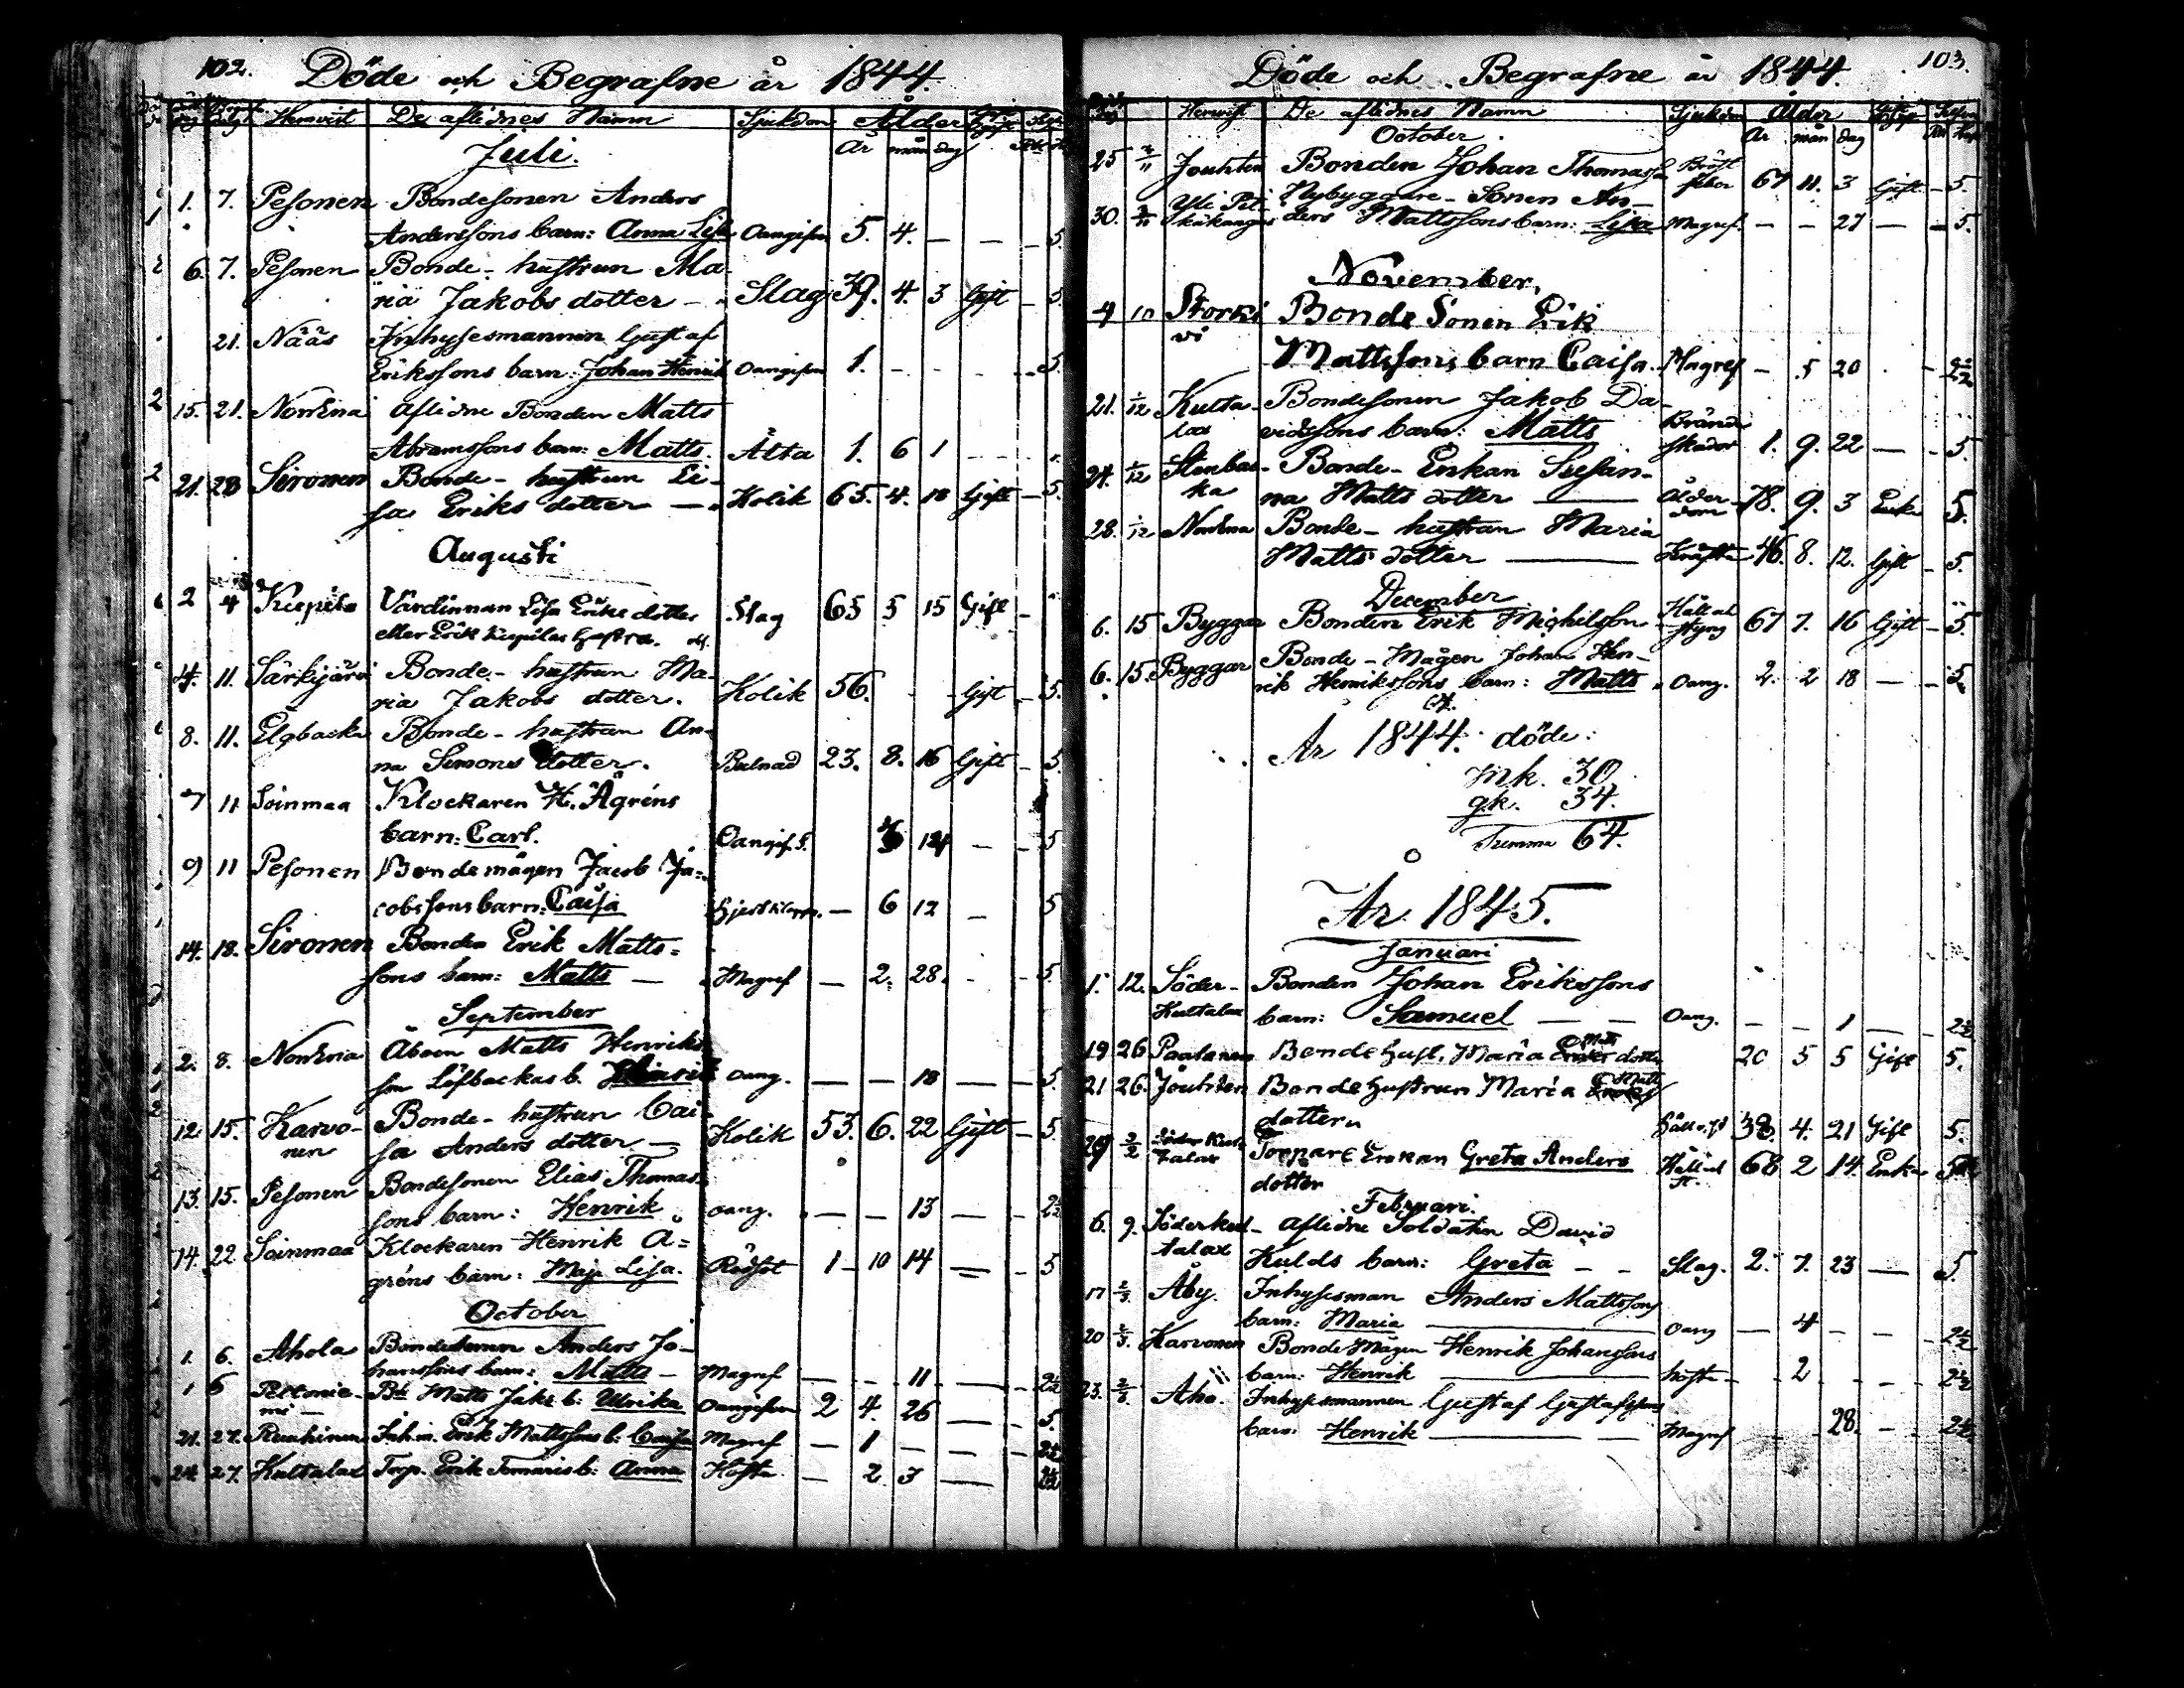 102. Döde och Begrafne år 1844.
Hemvist De aflidnes Namn Sjukdom Ålder
År mån dag
Juli.
1. 7. Pesonen Bondesonen Anders
Anderssons barn: Anna Lisa Oangifven 5. 4. — — 5.
6. 7. Pesonen Bonde-hustrun Ma-
ria Jakobs dotter — Slag 39. 4. 3 Gift — 5.
21. Nääs Inhysesmannen Gustaf
Erikssons barn: Johan Henrik Oangifven 1. - - - 5
15. 21. Norrena Aflidne Bonden Matts
Abramssons barn: Matts. Älta 1. 6 1
21. 28 Sironen Bonde-hustrun Li-
sa Eriks dotter — Kolik 65. 4. 18 Gift — 5.
Augusti
2 4 Värdinnan Lisa Eriks dotter Slag 65 5 15 Gift
eller Erik hustru.
4. 11. Särkijärvi Bonde-hustrun Ma-
ria Jakobs dotter. Kolik 56. Gift — 5.
8. 11. Elgbacka Bonde-hustrun An-
na Simons dotter. Bulnad 23. 8. 16 Gift — 5.
7 11 Soinmaa Klockaren H. Ågréns
barn: Carl. Oangif. — 5
9 11 Pesonen Bondemågen Jacob Ja-
cobssons barn: Caisa — 6 12 — 5
14. 18. Sironen Bonden Erik Matts-
sons barn: Matts — Magref — 2. 28. - 5.
September
2. 8. Norrena Åboen Matts Henriks
son Löfbackas b. Oang. — — 18 — 5.
12. 15. Karvo- Bonde-hustrun Cai-
nen sa Anders dotter — Kolik 53. 6. 22 Gift — 5
13. 15. Pesonen Bondesonen Elias Thomas-
sons barn: Henrik oang. — — 13 — 2½
14. 22 Soinmaa Klockaren Henrik Å-
gréns barn: Maja Lisa. Rödsot 1 — 10 14 — 5
October
1. 6. Ahola Bondesonen Anders Jo-
hanssons barn: Matts — Magref — — 11 — 2½
1 6 Matts Jaks b: Ulrika Oangifven 2 4. 26 — 5.
21. 27. Ruuhinen Inh.m. Erik Mattssons b: Caisa Magref — 1 — — 2½
24. 27. Kultalax Torp. Erik b: Anna Hosta — 2 3 — 2½
Döde och Begrafne år 1844. 103.
Hemvist De aflidnes Namn Sjukdom Ålder
October. År mån dag
25 3/11 Jouhten Bonden Johan Thomasson Bröst
feber 67 11. 3 Gift — 5.
Nybyggare-Sonen An-
30. ders Mattssons barn: Lisa Magref. — — 27 — 5.
November.
4 10 Storki Bonde Sonen Erik
vi
Mattssons barn Caisa. Magref — 5 20 - 2½
21. 1/12 Kulta- Bondesonen Jakob Da-
lax vidssons barn: Matts Bränd
skador 1. 9. 22 — 5.
24. 1/12 Stenbac- Bonde-Enkan Susan-
ka na Matts dotter — Ålder-
dom 78. 9. 3 Enka 5.
28. 1/12 Norrena Bonde-hustrun Maria
Matts dotter — Kräfta 46. 8. 12. Gift — 5.
December
6. 15 Byggar Bonden Erik Michelsson Håll och
styng 67 7. 16 Gift — 5.
6. 15. Byggar Bonde-Mågen Johan Hen-
rik Henrikssons barn: Matts Oang. 2. 2 18 — 5.
År 1844. döde:
mk. 30
qk. 34.
Summa 64.
År 1845.
Januari
1. 12. Söder- Bonden Johan Erikssons
Kultalax barn: Samuel — — Oang. — — 1 — 2½
19 26 Paalanen Bonde hust. Maria Matts dotter 20 5 5 Gift 5.
21 26. Jouhten Bonde hustrun Maria Matts
dotter Håll o. st 38. 4. 21 Gift 5.
29 2/2 Söder Kul- Torpare Enkan Greta Anders
talax dotter Håll och
st. 68 2 14. Enka
Februari.
6. 9. Söderkul- Aflidne Soldaten David
talax Hulds barn: Greta — — Slag. 2. 7. 23 — 5.
17 2/3. Åby. Inhysesman Anders Mattssons
barn: Maria — Oang — 4 - - 2½
20 2/3. Karvonen Bonde Mågen Henrik Johanssons
barn: Henrik — hosta — 2 - - 2½
23. 2/3 Aho. Inhysesmannen Gustaf Gustafssons
barn: Henrik — Magref — — 28. - - 2½